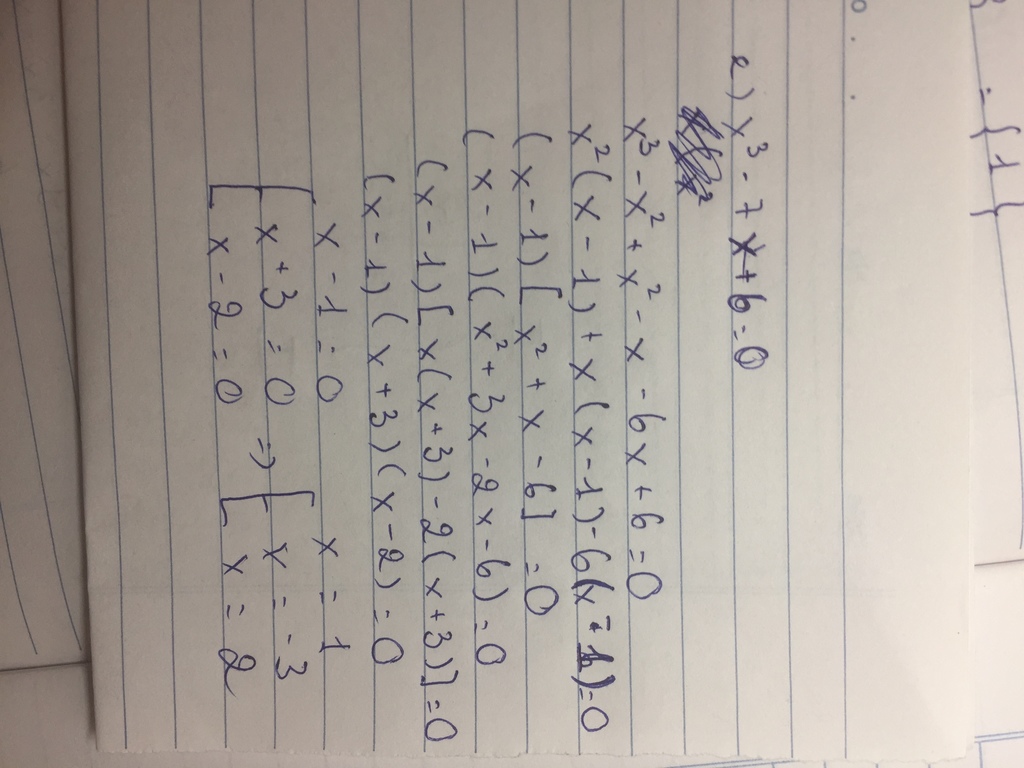 = { 1 }
e) x³ - 7x + 6 = 0
x³ - x² + x² - x - 6x + 6 = 0
x² (x - 1) + x (x - 1) - 6(x - 1) = 0
(x - 1) [ x² + x - 6] = 0
(x - 1) ( x² + 3x - 2x - 6) = 0
(x - 1) [ x (x + 3) - 2 (x + 3)] = 0
(x - 1) ( x + 3) ( x - 2) = 0
x - 1 = 0 x = 1
[ x + 3 = 0 => [ x = - 3
x - 2 = 0 x = 2